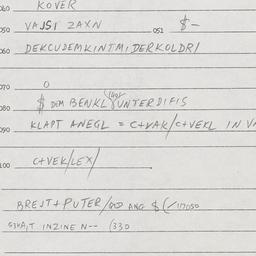 040 KOVER
050 VAJST ZAXN 051 $-
060 DEKCUDEMKINTMIDERKOLDR/
070 0
080 $ DEM BENKL UNTERDIFIS
090 KLAPT ANEGL = C+VAK/C+VEKL IN VA
100 C+VEK/LEX/
BREJT+PUTER/ ANG $(/17050
INZINE N-- (330